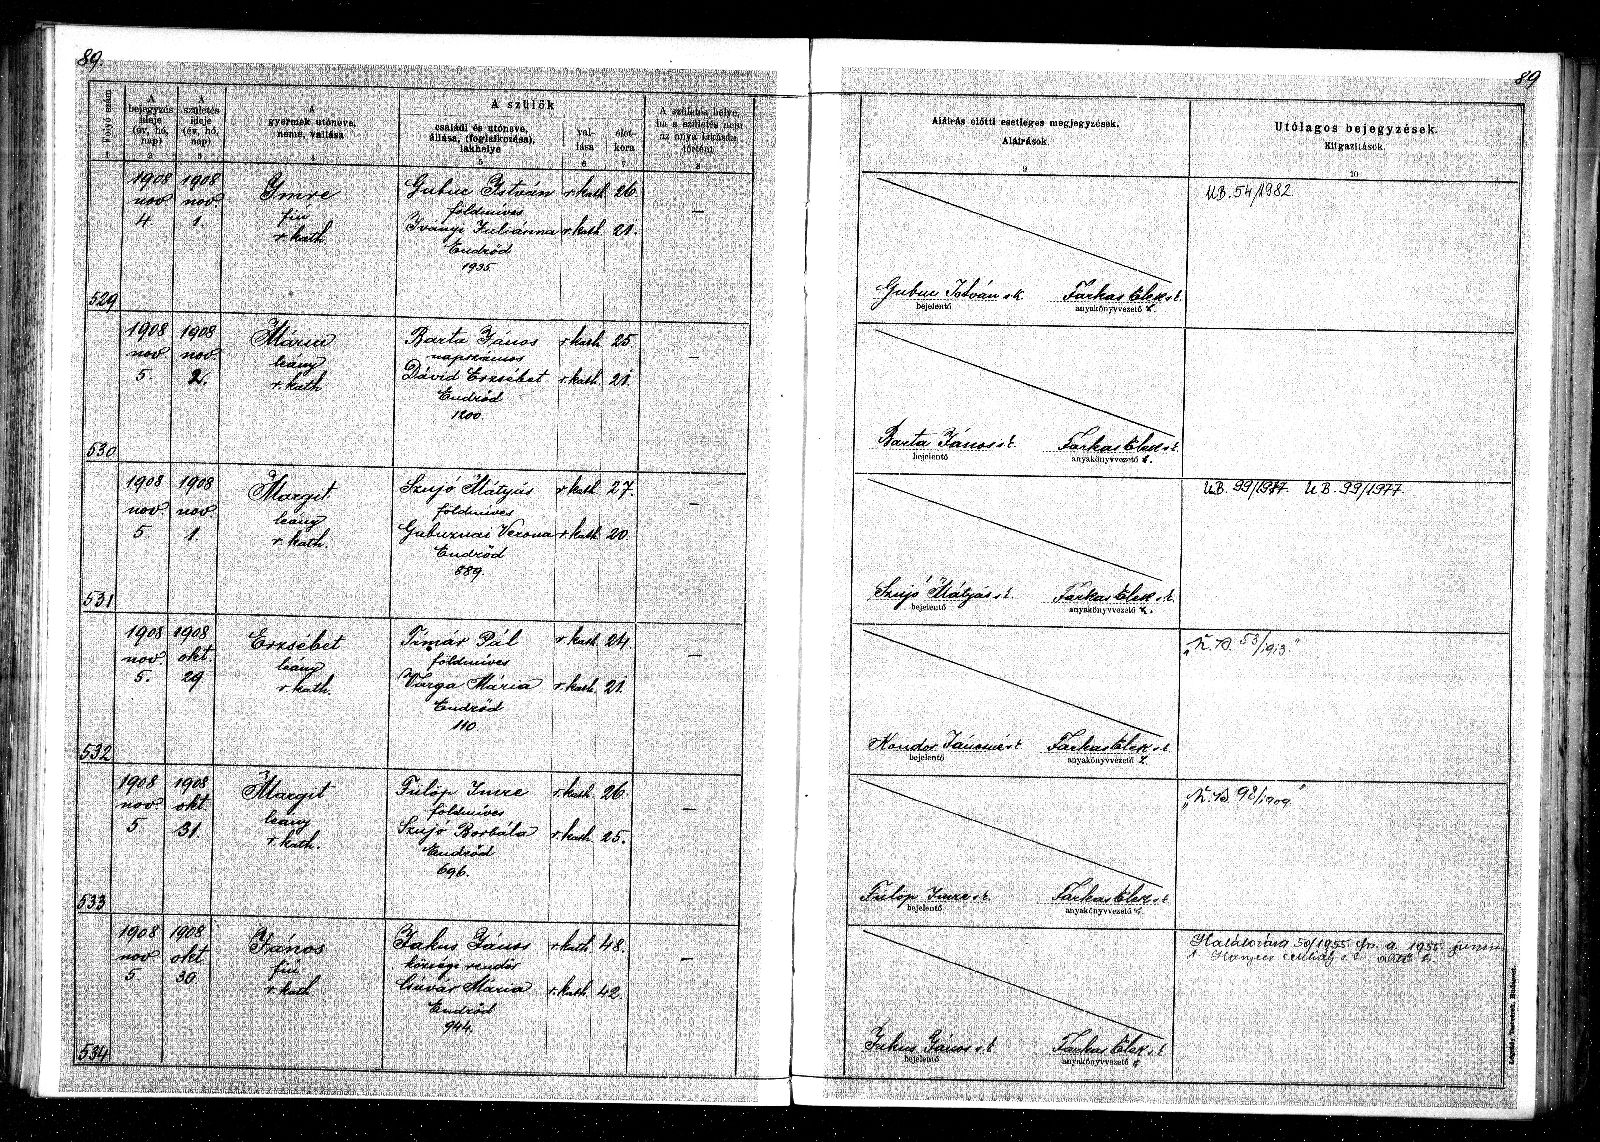 89.
89
Folyó szám
A bejegyzés ideje (év, hó, nap)
A születés ideje (év, hó, nap)
A gyermek utóneve, neme, vallása
A szülők
családi és utóneve, állása, (foglalkozása), lakhelye
vallása
életkora
A születés helye, ha a születés nem az anya lakásán történt
Aláírás előtti esetleges megjegyzések.
Aláírások.
Utólagos bejegyzések.
Kiigazítások.
1 2 3 4 5 6 7 8 9 10
529
1908 nov. 4
1908 nov. 1.
Imre
fiú
r. kath.
Gubuc István r. kath. 26.
földmíves
Iványi Juliánna r. kath. 21.
Endrőd
1935
—
Gubuc István s. k.
bejelentő
Farkas Elek s. k.
anyakönyvvezető h.
UB. 54/1982
530
1908 nov. 5.
1908 nov. 2.
Mária
leány
r. kath.
Barta János r. kath. 25.
napszámos
Dávid Erzsébet r. kath. 21.
Endrőd
1200.
—
Barta János s. k.
bejelentő
Farkas Elek s. k.
anyakönyvvezető h.
531
1908 nov. 5
1908 nov. 1.
Margit
leány
r. kath.
Szujó Mátyás r. kath. 27.
földmíves
Gubuznai Verona r. kath. 20.
Endrőd
889.
—
Szujó Mátyás s. k.
bejelentő
Farkas Elek s. k.
anyakönyvvezető h.
UB. 99/1977. UB. 99/1977.
532
1908 nov. 5.
1908 okt. 29
Erzsébet
leány
r. kath.
Tímár Pál r. kath. 24.
földmíves
Varga Mária r. kath. 21.
Endrőd
110.
—
Kondor Jánosné s. k.
bejelentő
Farkas Elek s. k.
anyakönyvvezető h.
„K. B. 53/1913."
533
1908 nov. 5.
1908 okt. 31.
Margit
leány
r. kath.
Fülöp Imre r. kath. 26.
földmíves
Szujó Borbála r. kath. 25.
Endrőd
696.
—
Fülöp Imre s. k.
bejelentő
Farkas Elek s. k.
anyakönyvvezető h.
„K. B. 98/1909"
534
1908 nov. 5
1908 okt. 30.
János
fiú
r. kath.
Jakus János r. kath. 48.
községi rendőr
Mária r. kath. 42.
Endrőd
944.
—
Jakus János s. k.
bejelentő
Farkas Elek s. k.
anyakönyvvezető h.
50/1955. 1955
Mihály s. k.